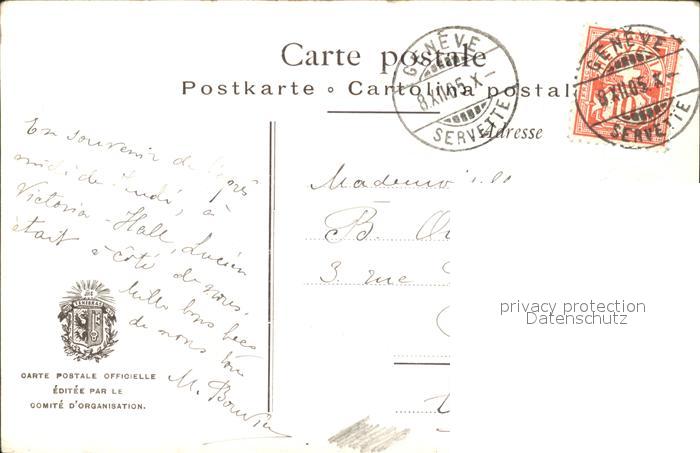 Carte postale
Postkarte • Cartolina postale
Adresse
GENÈVE
8.XII.05.X
SERVETTE
GENÈVE
8.XII.05.X
SERVETTE
10
En souvenir de l'après
midi de lundi, à
Victoria-Hall, Lucien
était à côté de nous.
Mille bons
de nous
M.
Mademoiselle
B.
3. rue
CARTE POSTALE OFFICIELLE
ÉDITÉE PAR LE
COMITÉ D'ORGANISATION.
privacy protection
Datenschutz